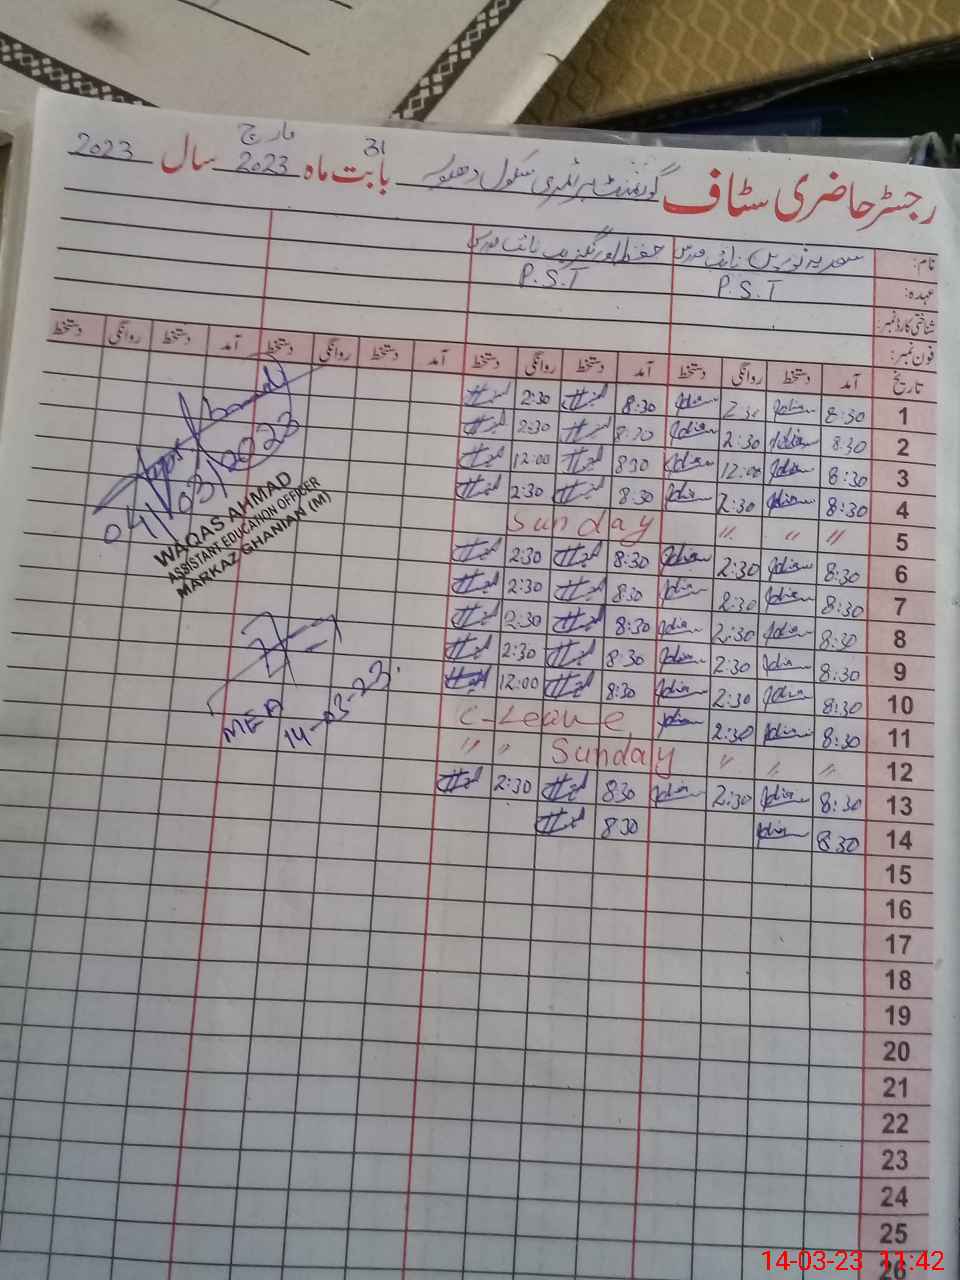 رجسٹر حاضری سٹاف گورنمنٹ پرائمری سکول بابت ماہ 31 مارچ 2023 سال 2023
نام:
عہدہ: P.S.T P.S.T
شناختی کارڈ نمبر:
فون نمبر:
تاریخ آمد دستخط روانگی دستخط آمد دستخط روانگی دستخط آمد دستخط روانگی دستخط آمد دستخط روانگی دستخط
1 8:30 2:30 8:30 2:30
2 8:30 2:30 8:30 2:30
3 8:30 12:00 8:30 12:00
4 8:30 2:30 8:30 2:30
5 " " " Sunday
6 8:30 2:30 8:30 2:30
7 8:30 2:30 8:30 2:30
8 8:30 2:30 8:30 2:30
9 8:30 2:30 8:30 2:30
10 8:30 2:30 8:30 12:00
11 8:30 2:30 C-Leave
12 " " " Sunday " "
13 8:30 2:30 8:30 2:30
14 8:30 8:30
15
16
17
18
19
20
21
22
23
24
25
26
04/03/2023
WAQAS AHMAD
ASSISTANT EDUCATION OFFICER
MARKAZ GHANIAN (M)
MEA
14-03-23.
14-03-23 11:42